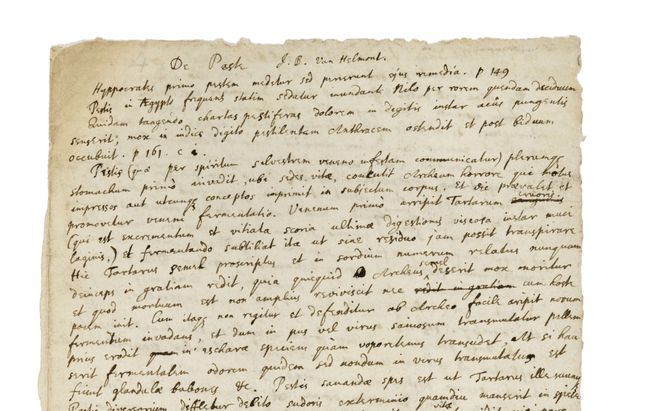 De Peste J. B. Van Helmont.
Hyppocrates primo pestem medetur sed perierunt ejus remedia. p 149
Pestis in Ægypto frequens statim sedatur inundante Nilo per rorem quendam deciduum
Quidam tangendo chartas pestiferas dolorem in digitis instar acûs pungentis
senserit; mox in indice digito pestilentem Anthracem ostendit et post biduum
occubuit. p 161. c
Pestis (quæ per spiritum sylvestrem veneno infestam communicatur) plerunque
stomachum primò invadit, ubi sedes vitæ, concutit Archeum horrore qui motus
impressos aut utcunque conceptos imprimit in subjectum corpus. Et sic prævalet et
promovetur veneni fermentatio. Venenum primò arripit Tartarum cruoris
(qui est excrementum et vitiata scoria ultimæ digestionis viscosa instar muci
laginis,) et fermentando subtiliat ita ut sine residuo jam possit transpirare
Hic Tartarus semel proscriptus et in sordium numerum relatus nunquam
deinceps in gratiam redit, quia quicquid Archeus semel deserit mox moritur
et quod mortuum est non amplius reviviscit nec redit in gratiam cum hoste
pacem init. Cum itaque non regitur et defenditur ab Archeo facile aripit novum
fermentum invadens, et dum in pus vel virus saniosum transmutatur pellem
prius erodit in escharæ speciem quam vaporibus transudet, At si hau
serit fermentalem odorem quidem sed nondum in virus transmutatum est
fiunt glandulæ bubones &c. Pestis sanandæ spes est ut Tartarus ille
diversorum diffletur debito sudoris exterminio quamdiu manserit in specie